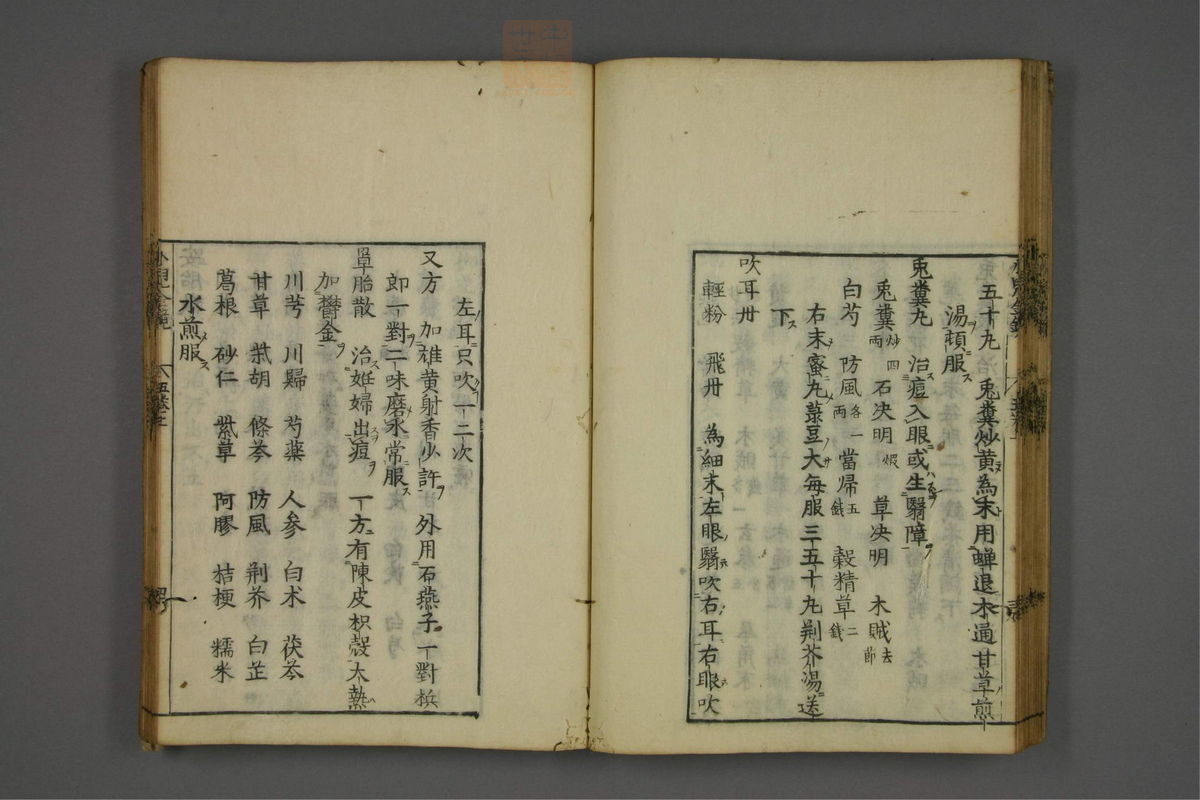 五十丸 兎糞炒黄為末用蟬退木通甘草煎
湯頓服ス
兎糞丸 治痘入眼或生翳障
兎糞炒四両 石决明煆 草决明 木賊去節
白芍 防風各一両 當帰五錢 穀精草二錢
右末蜜丸菉豆大每服三五十丸荆芥湯送
下ス
吹耳丹
輕粉 飛丹 為細末左眼翳吹右耳右眼吹
左耳只吹一二次
又方 加雄黄射香少許外用石燕子一對梹
即一對二味磨水常服ス
罩胎散 治妊婦出痘 一方有陳皮枳殼太熱
加欝金ヲ
川芎 川歸 芍薬 人参 白术 茯苓
甘草 柴胡 條芩 防風 荆芥 白芷
葛根 砂仁 紫草 阿膠 桔梗 糯米
水煎服ス
小児全鏡 五巻